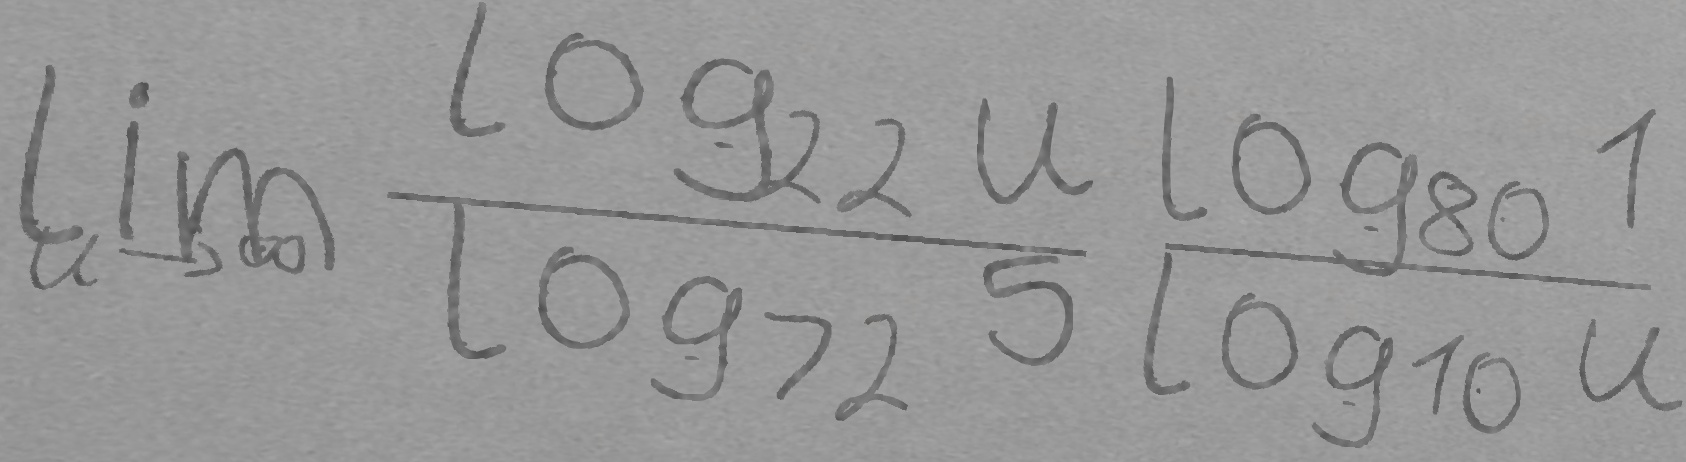 \lim_{u \to \infty} \frac{\log_{22} u}{\log_{72} 5} \frac{\log_{80} 1}{\log_{10} u}